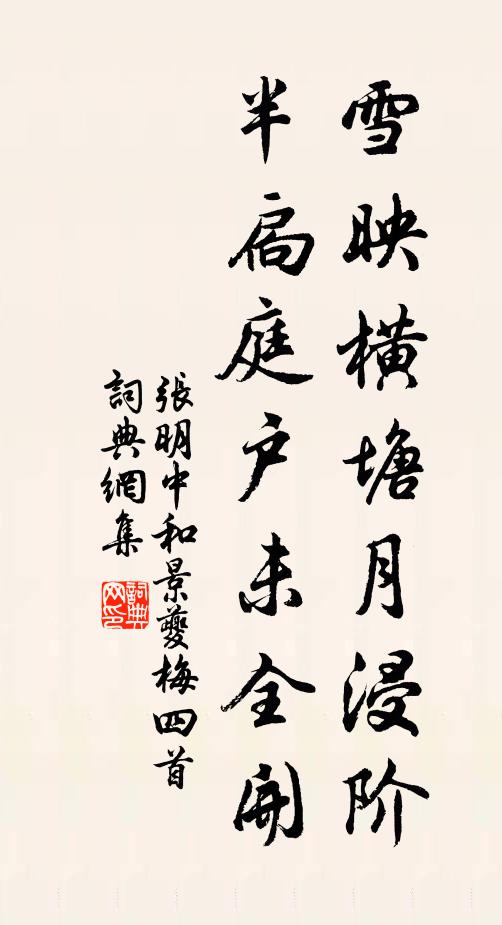 雪映橫塘月浸阶
半扃庭户未全開
張明中和景夔梅四首
詞典網集
詞典網印